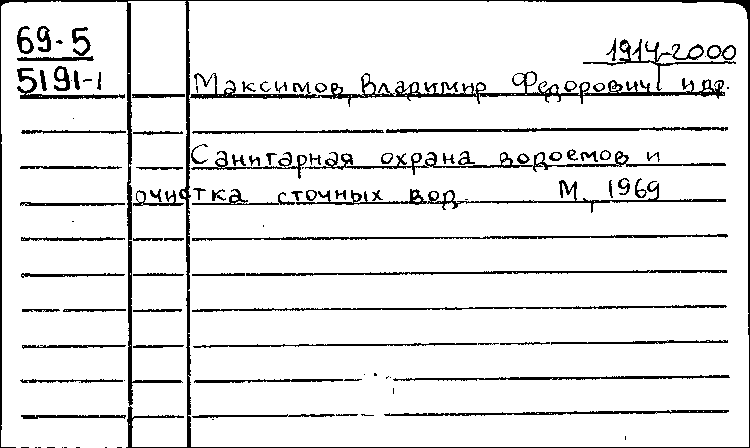 69-5
5191-1
1914-2000
Максимов, Владимир Федорович и др.
Санитарная охрана водоемов и
очистка сточных вод. М., 1969